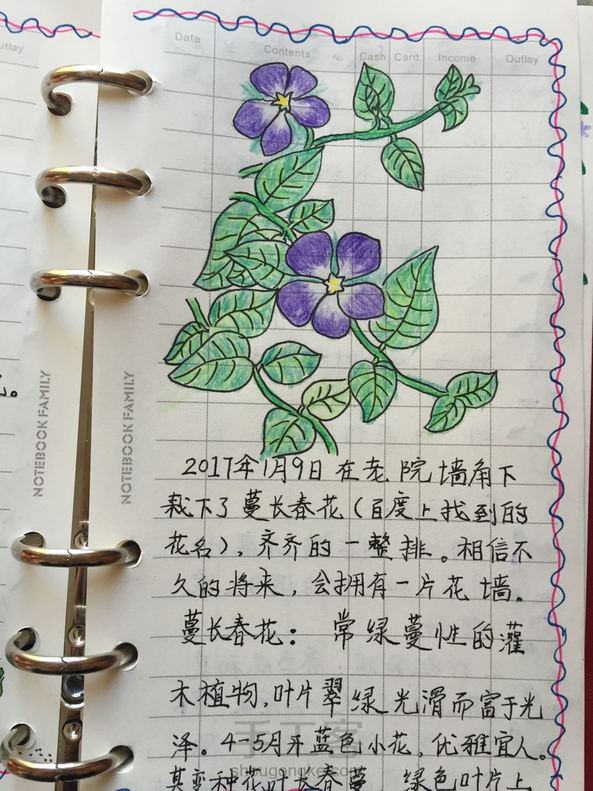 utlay
Date Contents Cash Card Income Outlay
NOTEBOOK FAMILY
NOTEBOOK FAMILY
。
2017年1月9日在老院墙角下
栽下了蔓长春花(百度上找到的
花名),齐齐的一整排。相信不
久的将来,会拥有一片花墙。
蔓长春花: 常绿蔓性的灌
木植物,叶片翠绿光滑而富于光
泽。4-5月开蓝色小花,优雅宜人。
其变种花叶长春蔓, 绿色叶片上
shougongke.com